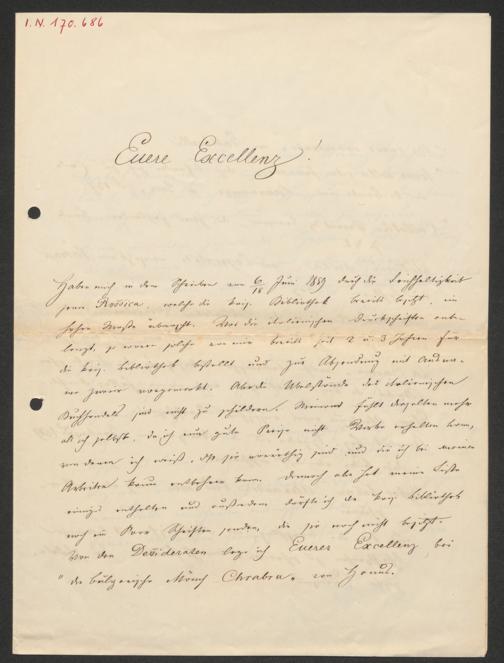 I.N. 170.686
Euere Excellenz!
Haben mich in dem Schreiben vom 6/18 Juni 1889 durch die Reichhaltigkeit
jener Rossica, welche die kais. Bibliothek bereits besitzt, im
hohen Maße Was die italienischen Druckschriften anbe-
langt, so waren solche von mir bereits seit 2 u. 3 Jahren für
die kais. Bibliothek bestellt und zur Absendung mit
vorgemerkt. Aber die des italienischen
Buchhandels sind nicht zu schildern. Niemand fühlt dieselben mehr
als ich selbst, da ich um gute Preise nicht Werke erhalten kann,
von denen ich weiß, daß sie vorräthig sind und die ich bei meinen
Arbeiten kaum entbehren kann. Dennoch aber hat meine Liste
einiges enthalten und außerdem dürfte ich der kais. Bibliothek
noch ein Paar Schriften senden, die sie noch nicht besitzt.
Von den Desideraten lege ich Euerer Excellenz bei
"der bulgarische Mönch Chrabru" von